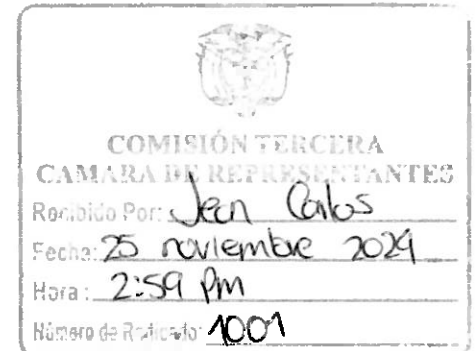 COMISIÓN TERCERA
CAMARA DE REPRESENTANTES
Recibido Por: Jean Carlos
Fecha: 25 noviembre 2024
Hora: 2:59 pm
Número de Radicado: 1001